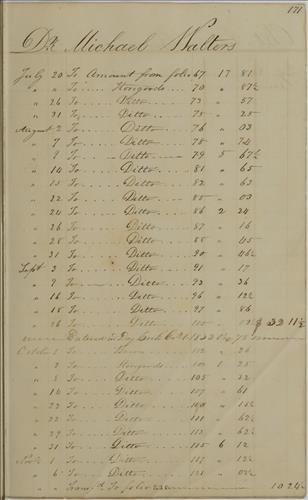 171
Dr. Michael Walters
July 20 To Amount from folio 67 17 81
" " To .... Hongoods .... 70 " 87½
" 26 To .... Ditto .... 73 " 57
" 31 To .... Ditto .... 75 " 25
August 2 To .... Ditto .... 76 " 03
" 7 To .... Ditto .... 78 " 74
" 9 To .... Ditto .... 79 5 67½
" 14 To .... Ditto .... 81 " 65
" 15 To .... Ditto .... 82 " 63
" 22 To .... Ditto .... 85 " 03
" 24 To .... Ditto .... 86 2 24
" 26 To .... Ditto .... 87 " 16
" 28 To .... Ditto .... 88 " 45
" 31 To .... Ditto .... 90 " 46½
Sept 2 To .... Ditto .... 91 " 17
" 9 To .... Ditto .... 93 " 36
" 16 To .... Ditto .... 96 " 12½
" 15 To .... Ditto .... 97 " 86
" 26 To .... Ditto .... 100 $ 32 11½
October 1 To .... 102 " 26
" 2 To .... Hongoods .... 103 1 25
" 8 To .... Ditto .... 105 " 22
" 14 To .... Ditto .... 107 " 61
" 22 To .... Ditto ....
" 22 To .... Ditto .... 111 " 62½
" 29 To .... Ditto .... 113 " 62½
" 31 To .... Ditto .... 115 6 12
Novr 1 To .... Ditto .... 117 " 12½
" 6 To .... Ditto .... 121 "
" Transfd To folio 10 24